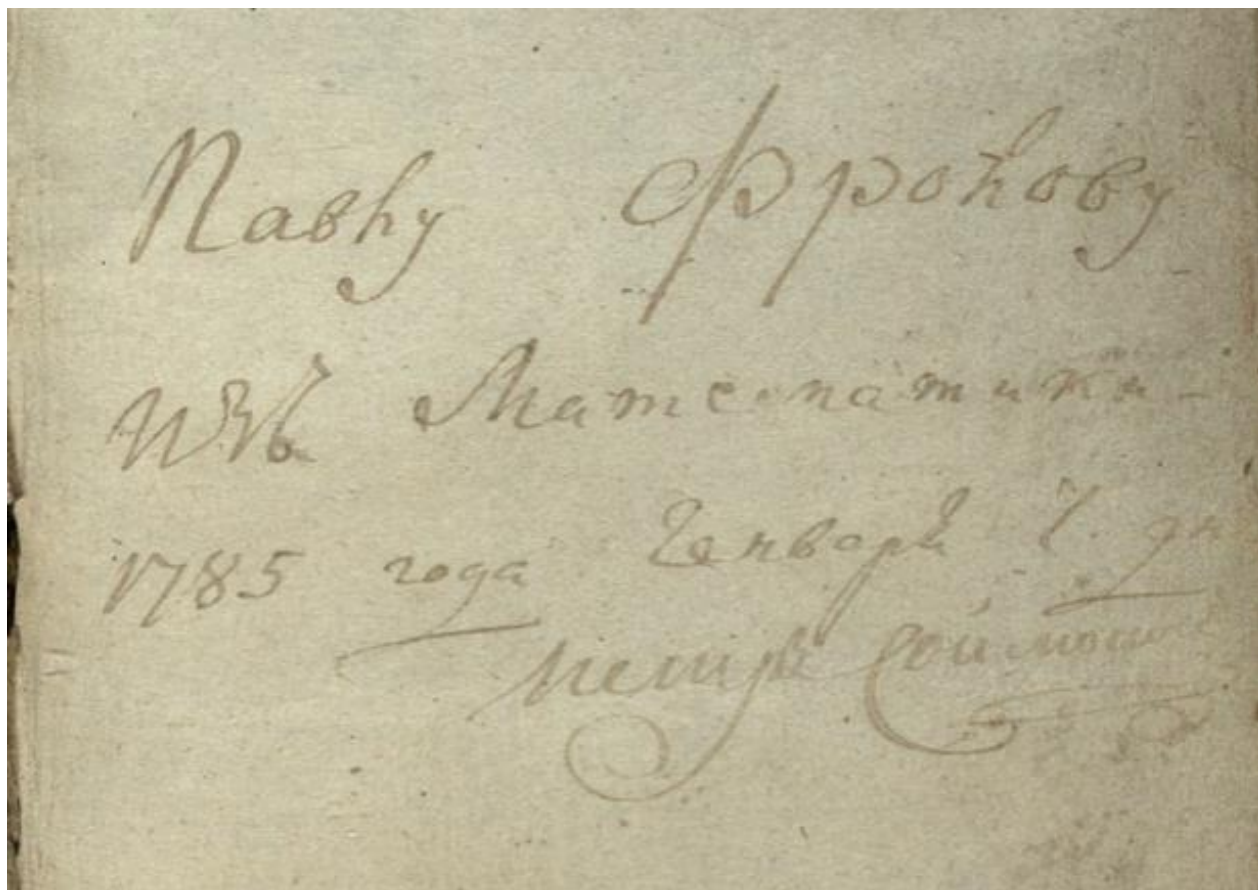 Павлу Фролову
Изъ Математики -
1785 года Генваря 7. дн
Петръ Соймонов